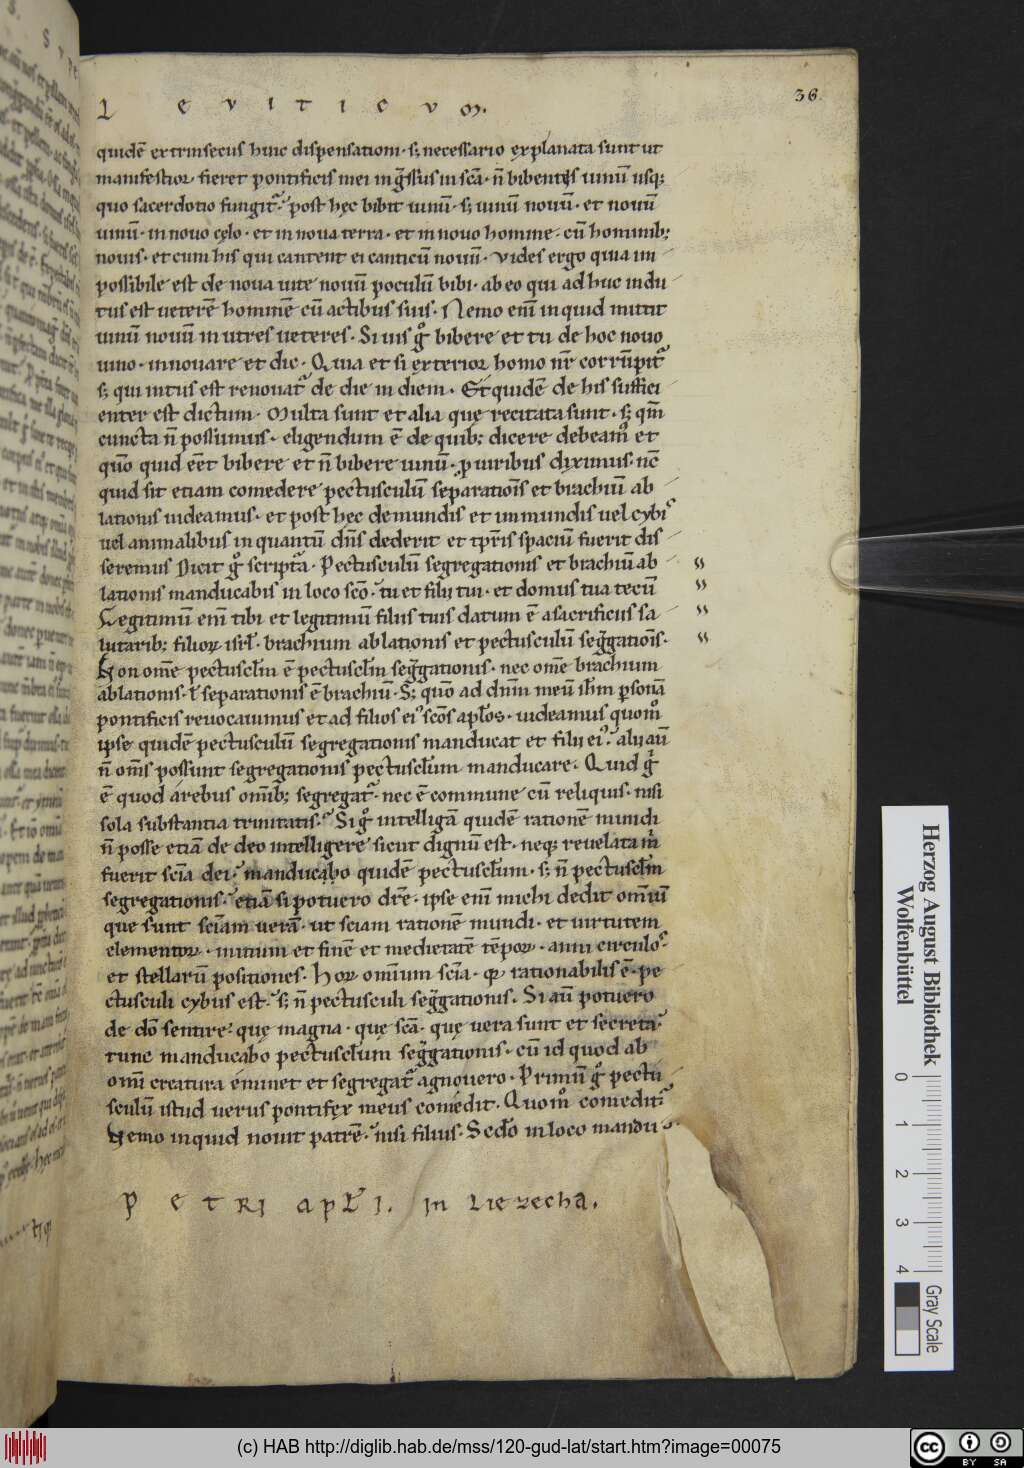 LEVITICUM.
36.
quidē extrinsecus huic dispensationi· s; necessario explanata sunt ut
manifestior fieret pontificis mei ingressus in scā· n̄ bibentis uinū usq;
quo sacerdotio fungit᷑· post hęc bibit uinū· s; uinū nouū· et nouū
uinū· in nouo cęlo· et in noua terra· et in nouo homine· cū hominib;
nouis· et cum his qui cantent ei canticū nouū· Vides ergo quia im
possibile est de noua uite nouū poculū bibi· ab eo qui adhuc indu
tus est ueterē hominē cū actibus suis· Nemo enī inquid mittit
uinū nouū in utres ueteres· Si uis gͦ bibere et tu de hoc nouo
uino· innouare et dic· Quia et si exterior homo nr̄ corrūpit᷑
s; qui intus est renouat᷑ de die in diem· Et quidē de his suffici
enter est dictum· Multa sunt et alia quę recitata sunt· s; qm̄
cuncta n̄ possumus· eligendum ē de quib; dicere debeamꝰ et
quō quid eēt bibere et n̄ bibere uinū· p uiribus diximus· nc̄
quid sit etiam comedere pectusculū separationis et brachiū ab
lationis uideamus· et post hęc de mundis et inmundis uel cybis
uel animalibus in quantū dn̄s dederit et tp̄ris spaciū fuerit dis
seremus Dicit gͦ scriptā· Pectusculū segregationis et brachiū ab
lationis manducabis in loco scō· tu et filii tui· et domus tua tecū
Legitimū enī tibi et legitimū filiis tuis datum ē a sacrificiis sa
lutarib; filior isrl̄· brachium ablationis et pectusculū seg̃gationis·
Non om̄e pectuscl̄m ē pectuscl̄m seg̃gationis· nec om̄e brachium
ablationis· ł separationis ē brachiū· S; quō ad dn̄m meū ih̄m psonā
pontificis reuocauimus et ad filios eiꝰ scōs apl̄os· uideamus quomꝰ
ipse quidē pectusculū segregationis manducat et filii eiꝰ· alii aū
n̄ om̄s possunt segregationis pectusclūm manducare· Quid g̊
ē quod a rebus omib; segregat᷑· nec ē commune cū reliquis· nisi
sola substantia trinitatis· Si gͦ intelligā quidē rationē mundi
n̄ posse etiā de deo intelligere sicut dignū est· neq; reuelata m̊
fuerit scīa dei· manducabo quidē pectusclūm· s; n̄ pectusclm̄
segregationis· etiā si potuero dre̅· ipse enī michi dedit om̄iū
que sunt sciām uerā· ut sciam rationē mundi· et uirtutem
elementor· initium et finē et medietatē tēpor· anni circulos
et stellarū positiones· Hor omīum scīa· qr rationabilis ē· pe
ctusculi cybus est· s; n̄ pectusculi seg̃gationis· Si aū potuero
de dō sentire· quę magna· quę scā· quę uera sunt et secreta·
tunc manducabo pectusclūm seg̃gationis· cū id quod ab
omī creatura eminet et segregat᷑ agnouero· Primū gͦ pectu
sculū istud uerus pontifex meus comedit· Quomꝰ comedit·
Nemo inquid nouit patrē· nisi filius· Scdō in loco mandu
PETRI apł'I. In Lierecha.
Herzog August Bibliothek
Wolfenbüttel
0 1 2 3 4
Gray Scale
(c) HAB http://diglib.hab.de/mss/120-gud-lat/start.htm?image=00075
cc BY SA